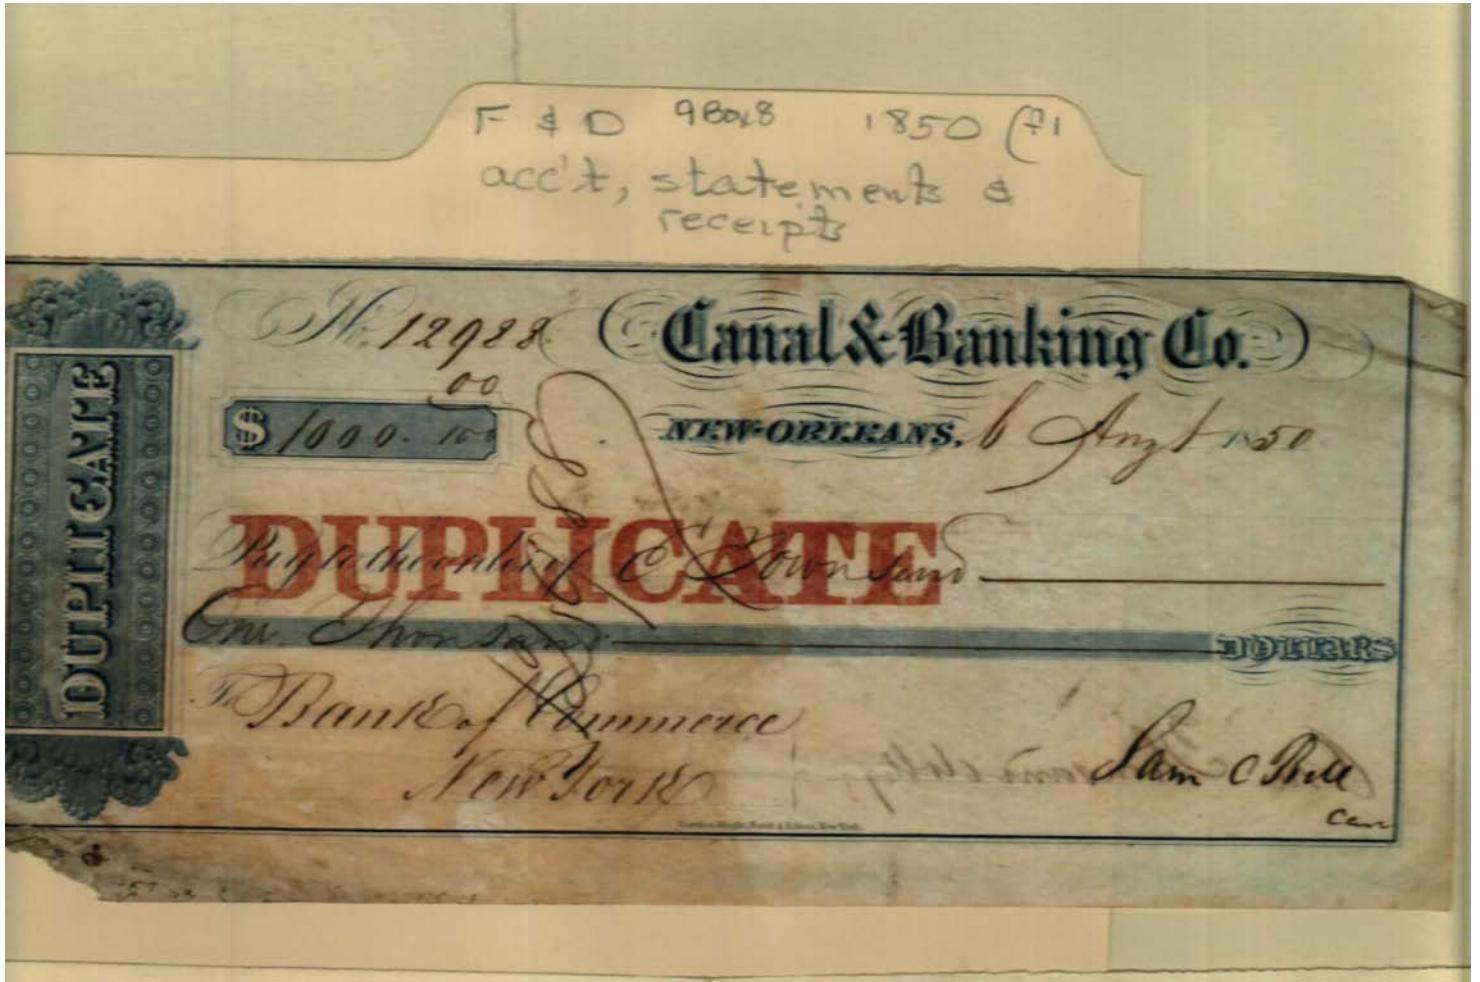 F & D 9Box8 1850 (f1
acc't, statements &
receipts
DUPLICATE
No. 12988. Canal & Banking Co.
$ 1000. 00/100
NEW-ORLEANS, 6 Augt 1850
DUPLICATE
Pay to the order of C Townsend
One Thousand DOLLARS
To Bank of Commerce
New York
Sam C Bell
Cas